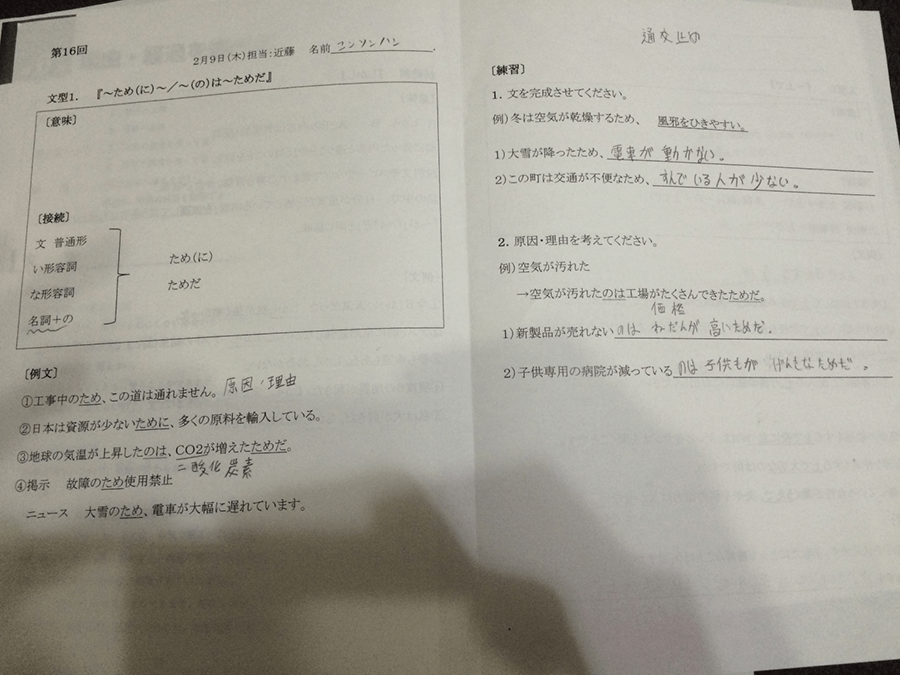 第16回
2月9日(木)担当:近藤 名前 コンソンハン.
文型1. 『～ため(に)～/～(の)は～ためだ』
〔意味〕
〔接続〕
文 普通形
い形容詞
な形容詞
名詞+の
ため(に)
ためだ
〔例文〕
①工事中のため、この道は通れません。原因・理由
②日本は資源が少ないために、多くの原料を輸入している。
③地球の気温が上昇したのは、CO2が増えたためだ。
二酸化炭素
④掲示 故障のため使用禁止
ニュース 大雪のため、電車が大幅に遅れています。
通交止め
〔練習〕
1. 文を完成させてください。
例)冬は空気が乾燥するため、 風邪をひきやすい。
1)大雪が降ったため、電車が動かない。
2)この町は交通が不便なため、すんでいる人が少ない。
2. 原因・理由を考えてください。
例)空気が汚れた
→空気が汚れたのは工場がたくさんできたためだ。
価格
1)新製品が売れないのはねだんが高いためだ.
2)子供専用の病院が減っているのは子供もが げんきなためだ。